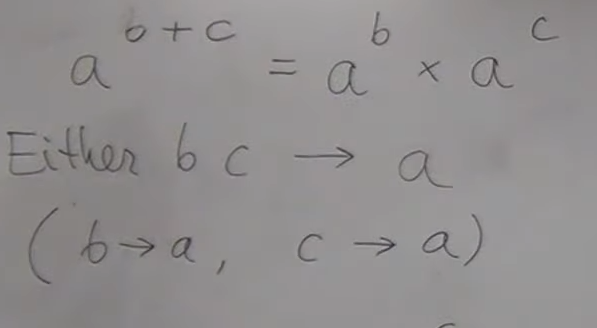 a^{b+c} = a^b × a^c
Either b c → a
(b→a, c → a)